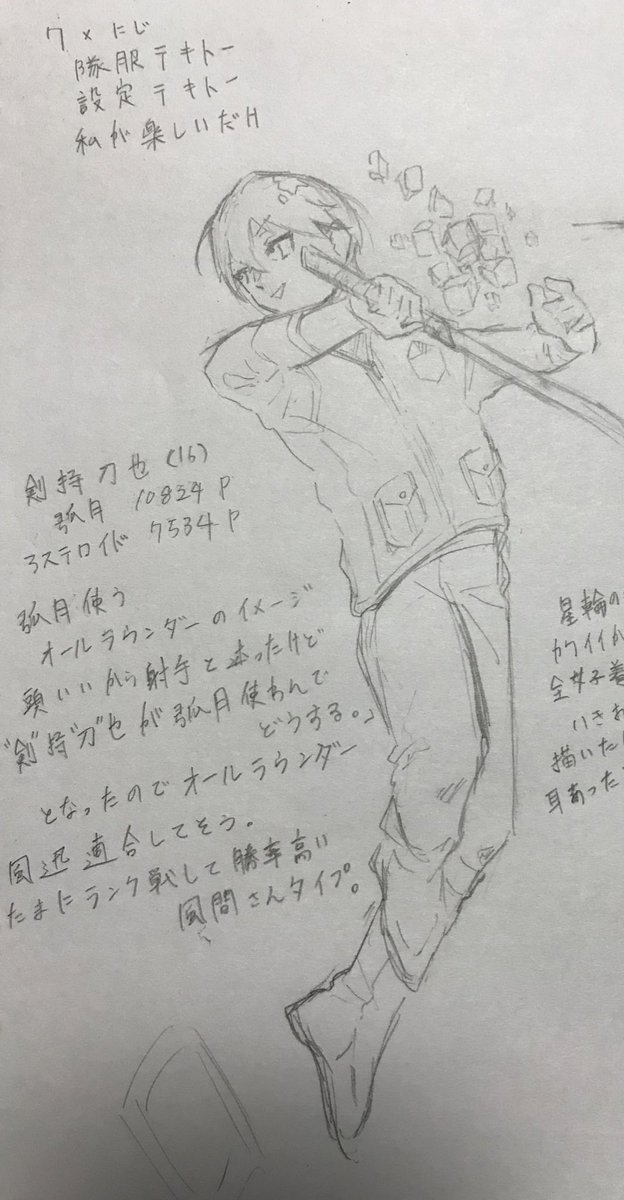 ワ×にじ
隊服テキトー
設定テキトー
私が楽しいだけ
剣持刀也(16)
弧月 10824P
アステロイド 7534P
弧月使う
オールラウンダーのイメージ
頭いいから射手と迷ったけど
"剣"持"刀"也が弧月使わんで
どうする。
となったのでオールラウンダー
風迅適合してそう。
たまにランク戦して勝率高い
風間さんタイプ。
星輪の
カワイイか
全女子着
いきお
描いた
耳あった